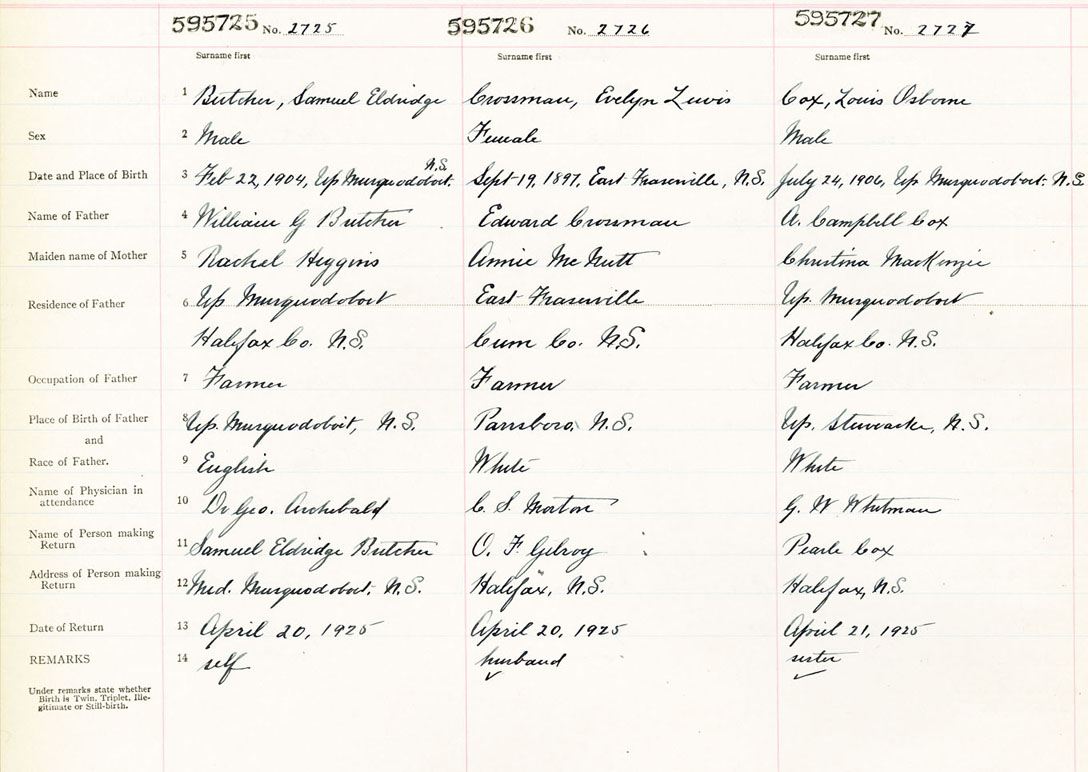 595725 No. 2725 595726 No. 2726 595727 No. 2727
Surname first Surname first Surname first
Name 1 Butcher, Samuel Eldridge Crossman, Evelyn Lewis Cox, Louis Osborne
Sex 2 Male Female Male
N.S.
Date and Place of Birth 3 Feb 22, 1904, Up Musquodoboit. Sept 19, 1897, East Fraserville, N.S. July 24, 1906, Up Musquodoboit. N.S.
Name of Father 4 William G Butcher Edward Crossman A. Campbell Cox
Maiden name of Mother 5 Rachel Higgins Annie McNutt Christina MacKenzie
Residence of Father 6 Up Musquodoboit East Fraserville Up. Musquodoboit
Halifax Co. N.S. Cum Co. N.S. Halifax Co. N.S.
Occupation of Father 7 Farmer Farmer Farmer
Place of Birth of Father 8 Up. Musquodoboit, N.S. Parrsboro, N.S. Up. Stewiacke, N.S.
and
Race of Father. 9 English White White
Name of Physician in
attendance 10 Dr Geo. Archibald C. S. Morton G. W Whitman
Name of Person making
Return 11 Samuel Eldridge Butcher O. F. Gilroy Pearle Cox
Address of Person making
Return 12 Mid. Musquodoboit, N.S. Halifax, N.S. Halifax, N.S.
Date of Return 13 April 20, 1925 April 20, 1925 April 21, 1925
REMARKS 14 self husband sister
Under remarks state whether
Birth is Twin, Triplet, Ille-
gitimate or Still-birth.